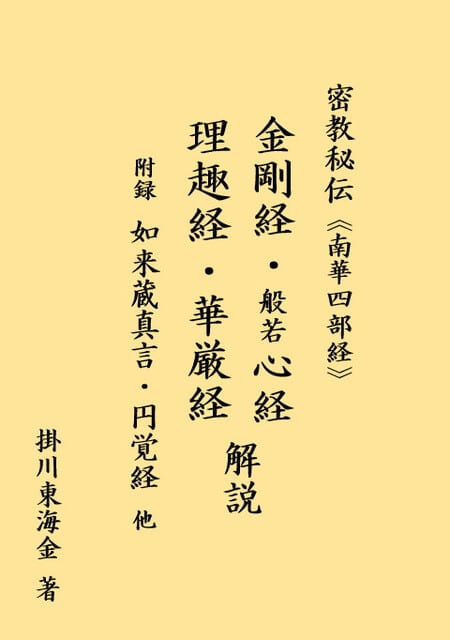 密教秘伝《南華四部経》
金剛経・般若心経
理趣経・華厳経
解説
附録 如来蔵真言・円覚経 他
掛川東海金 著